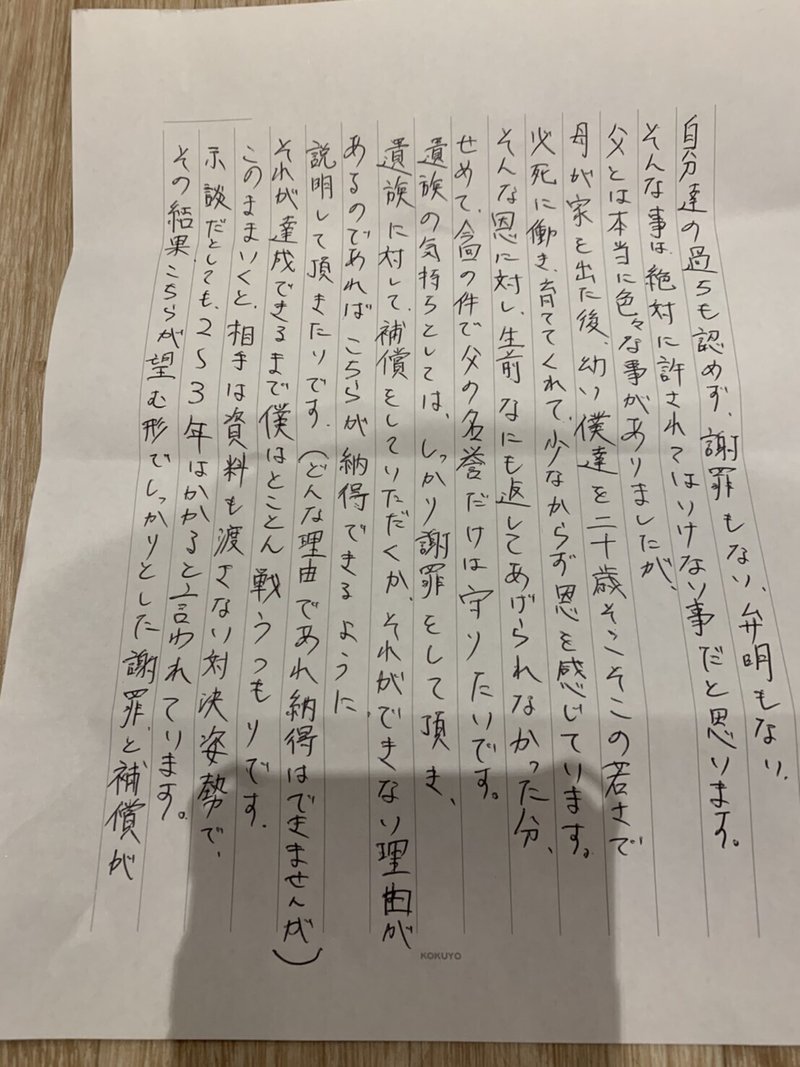 自分達の過ちも認めず、謝罪もない、弁明もない、
そんな事は、絶対に許されてはいけない事だと思います。
父とは本当に色々な事がありましたが、
母が家を出た後、幼い僕達を二十歳そこそこの若さで
必死に働き、育ててくれて、少なからず恩を感じています。
そんな恩に対し、生前なにも返してあげられなかった分、
せめて、今回の件で父の名誉だけは守りたいです。
遺族の気持ちとしては、しっかり謝罪をして頂き、
遺族に対して、補償をしていただくか、それができない理由が
あるのであればこちらが納得できるように、
説明して頂きたいです。(どんな理由であれ納得はできませんが)
それが達成できるまで僕はとことん戦うつもりです。
このままいくと、相手は資料も渡さない対決姿勢で、
示談だとしても、2~3年はかかると言われています。
その結果こちらが望む形でしっかりとした謝罪と補償が
KOKUYO